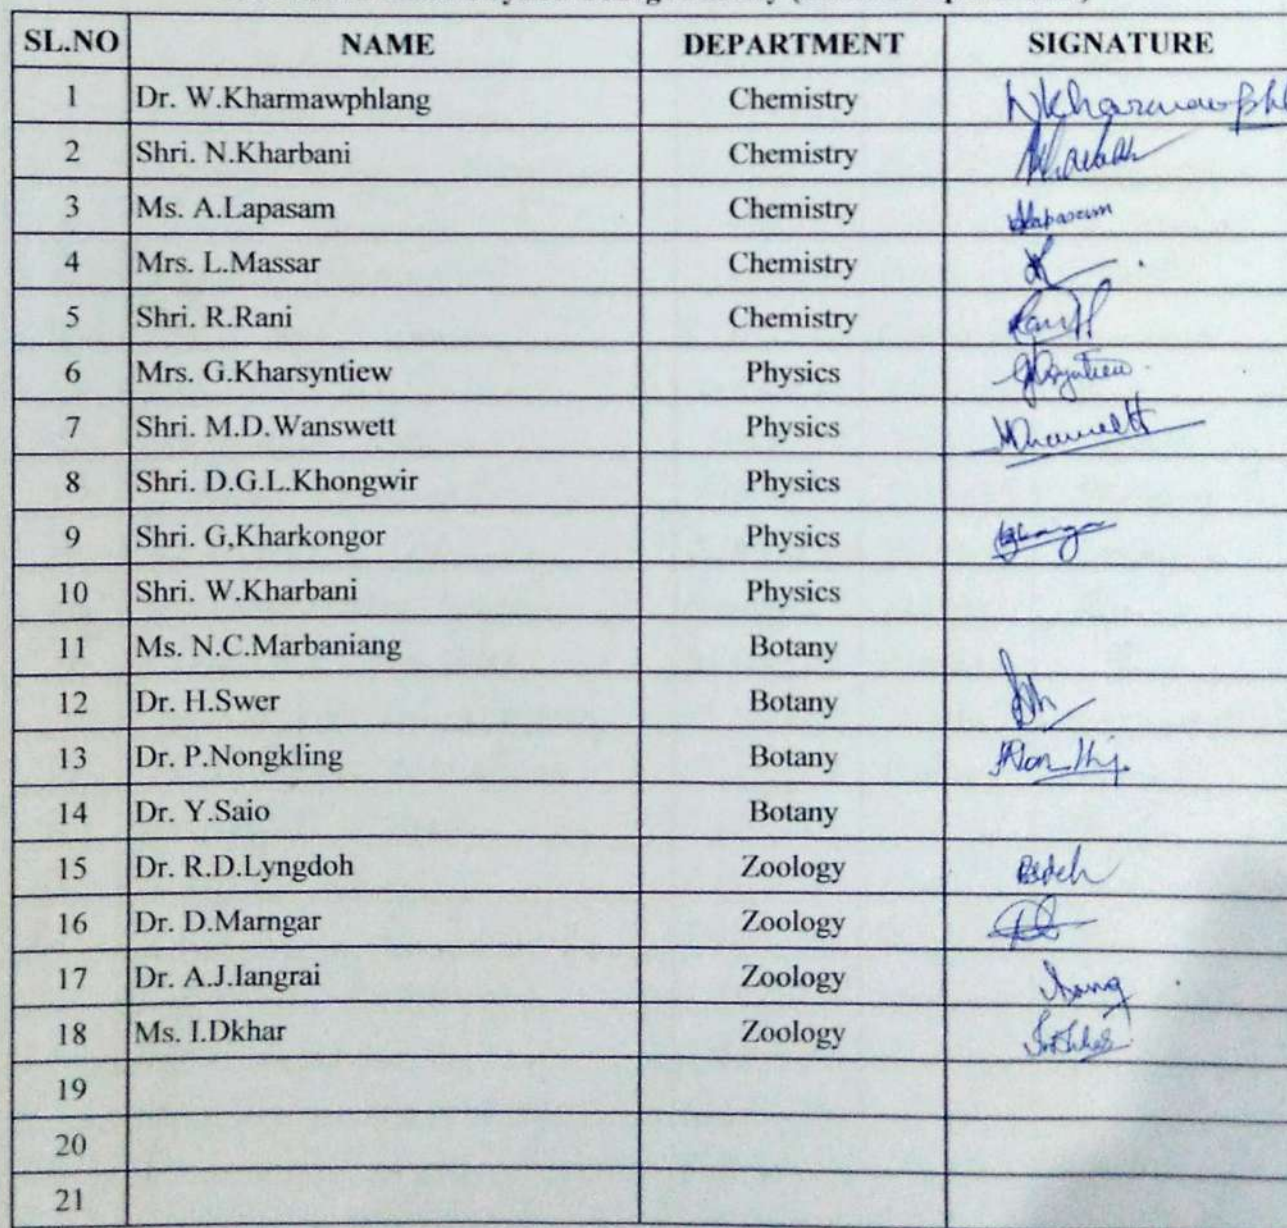 SL.NO NAME DEPARTMENT SIGNATURE
1 Dr. W.Kharmawphlang Chemistry Wkharmawphl
2 Shri. N.Kharbani Chemistry
3 Ms. A.Lapasam Chemistry Alapasam
4 Mrs. L.Massar Chemistry
5 Shri. R.Rani Chemistry
6 Mrs. G.Kharsyntiew Physics
7 Shri. M.D.Wanswett Physics
8 Shri. D.G.L.Khongwir Physics
9 Shri. G,Kharkongor Physics
10 Shri. W.Kharbani Physics
11 Ms. N.C.Marbaniang Botany
12 Dr. H.Swer Botany
13 Dr. P.Nongkling Botany
14 Dr. Y.Saio Botany
15 Dr. R.D.Lyngdoh Zoology
16 Dr. D.Marngar Zoology
17 Dr. A.J.Iangrai Zoology
18 Ms. I.Dkhar Zoology
19
20
21